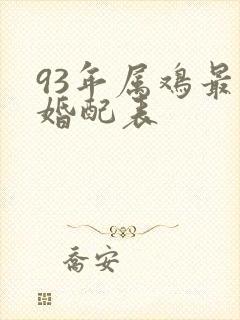 93年属鸡最
婚配表
乔安